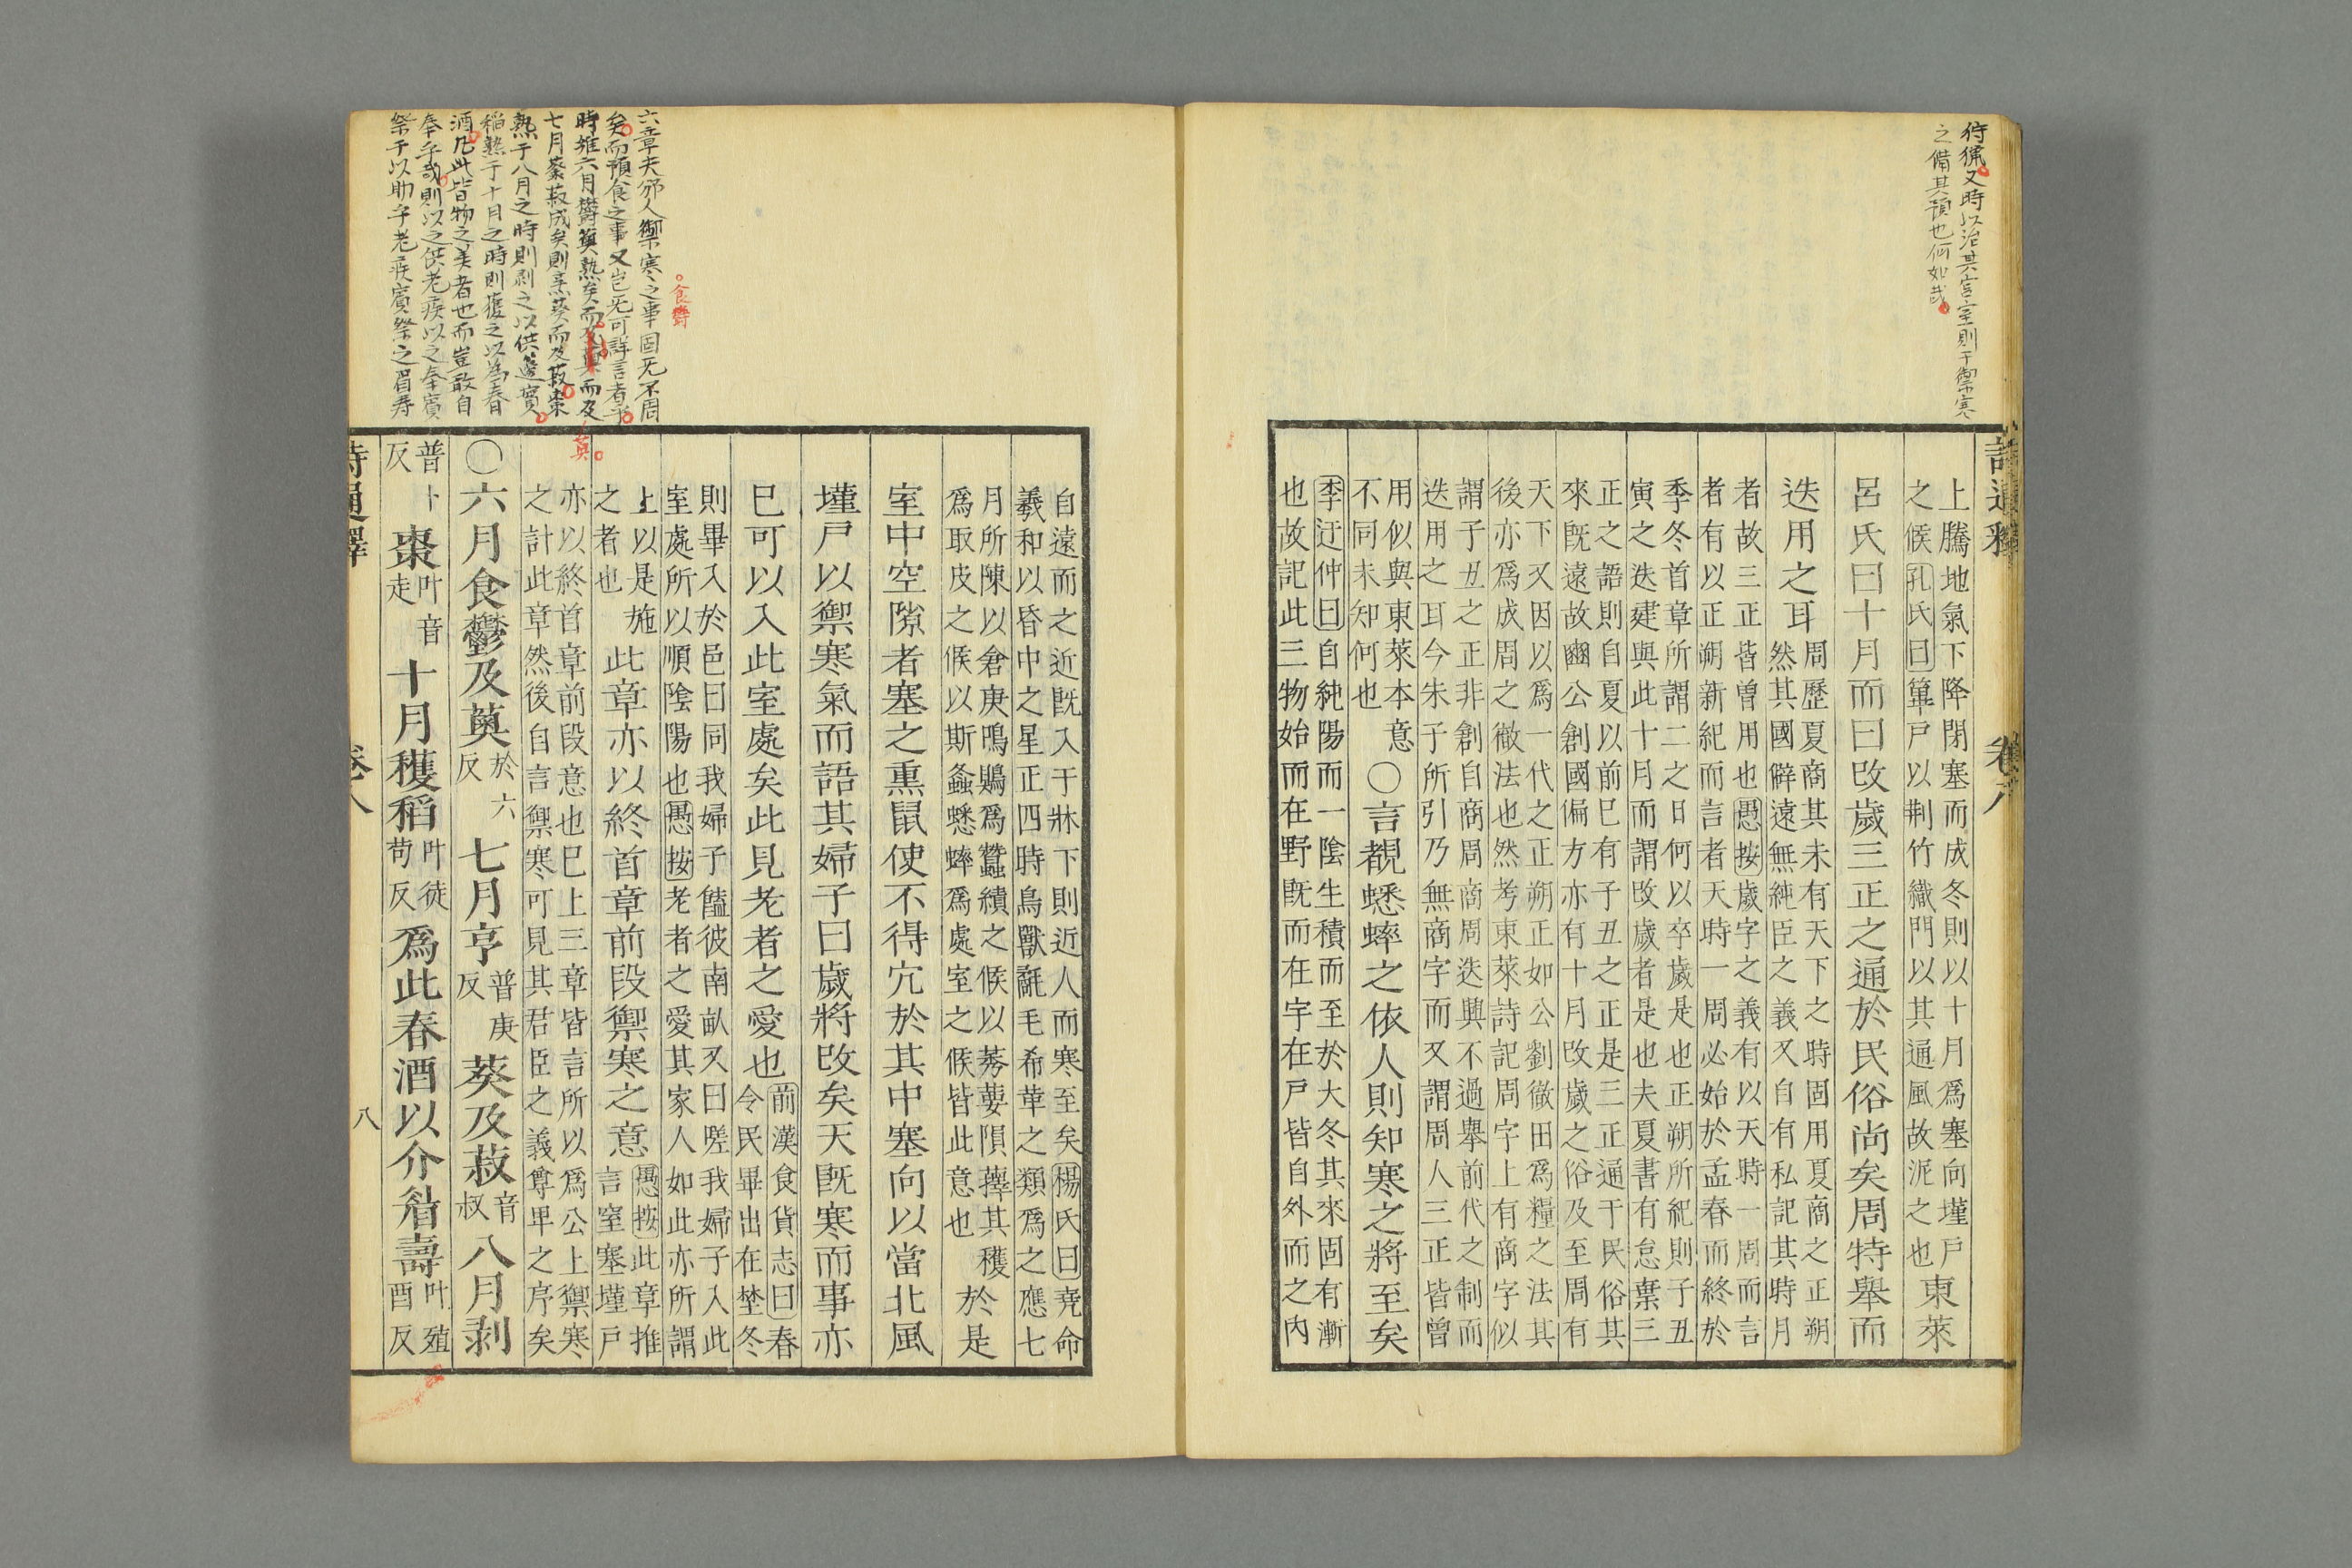 狩獵又時以治其宮室則于禦寒
之備其預也何如哉
詩通釋 卷八
上騰地氣下降閉塞而成冬則以十月爲塞向墐戸
之候孔氏曰篳戸以荆竹織門以其通風故泥之也
東萊
呂氏曰十月而曰改歲三正之通於民俗尚矣周特舉而
迭用之耳
周歷夏商其未有天下之時固用夏商之正朔
然其國僻遠無純臣之義又自有私記其時月
者故三正皆曾用也愚按歲字之義有以天時一周而言
者有以正朔新紀而言者天時一周必始於孟春而終於
季冬首章所謂二之日何以卒歲是也正朔所紀則子丑
寅之迭建與此十月而謂改歲者是也夫夏書有怠棄三
正之語則自夏以前已有子丑之正是三正通于民俗其
來旣遠故豳公創國偏方亦有十月改歲之俗及至周有
天下又因以爲一代之正朔正如公劉徹田爲糧之法其
後亦爲成周之徹法也然考東萊詩記周字上有商字似
謂子丑之正非創自商周商周迭興不過舉前代之制而
迭用之耳今朱子所引乃無商字而又謂周人三正皆曾
用似與東萊本意
不同未知何也
〇言覩蟋蟀之依人則知寒之將至矣
季迂仲曰自純陽而一陰生積而至於大冬其來固有漸
也故記此三物始而在野旣而在宇在戸皆自外而之內
自遠而之近旣入于牀下則近人而寒至矣楊氏曰堯命
羲和以昏中之星正四時鳥獸毳毛希革之類爲之應七
月所陳以倉庚鳴鵙爲蠶績之候以莠葽隕蘀其穫
爲取皮之候以斯螽蟋蟀爲處室之候皆此意也
於是
室中空隙者塞之熏鼠使不得穴於其中塞向以當北風
墐戸以禦寒氣而語其婦子曰歲將改矣天旣寒而事亦
已可以入此室處矣此見老者之愛也
前漢食貨志曰春
令民畢出在埜冬
則畢入於邑曰同我婦子饁彼南畝又曰嗟我婦子入此
室處所以順陰陽也愚按老者之愛其家人如此亦所謂
上以是施
之者也
此章亦以終首章前段禦寒之意
愚按此章推
言窒塞墐戸
亦以終首章前段意也已上三章皆言所以爲公上禦寒
之計此章然後自言禦寒可見其君臣之義尊卑之序矣
〇六月食鬱及薁
於六
反
七月亨
普庚
反
葵及菽
音
叔
八月剥
普卜
反
棗
叶音
走
十月穫稻
叶徒
苟反
爲此春酒以介眉壽
叶殖
酉反
詩通釋 卷八 八
六章夫邠人禦寒之事固无不周
矣而預食之事又豈无可詳言者乎
時維六月鬱薁熟矣而及薁而及
七月葵菽成矣則烹葵而及菽棗
熟于八月之時則剥之以供籩實
稻熟于十月之時則穫之以為春
酒凡此皆物之美者也而豈敢自
奉乎哉則以之供老疾以之奉賓
祭于以助乎老疾賓祭之眉寿
食鬱
薁